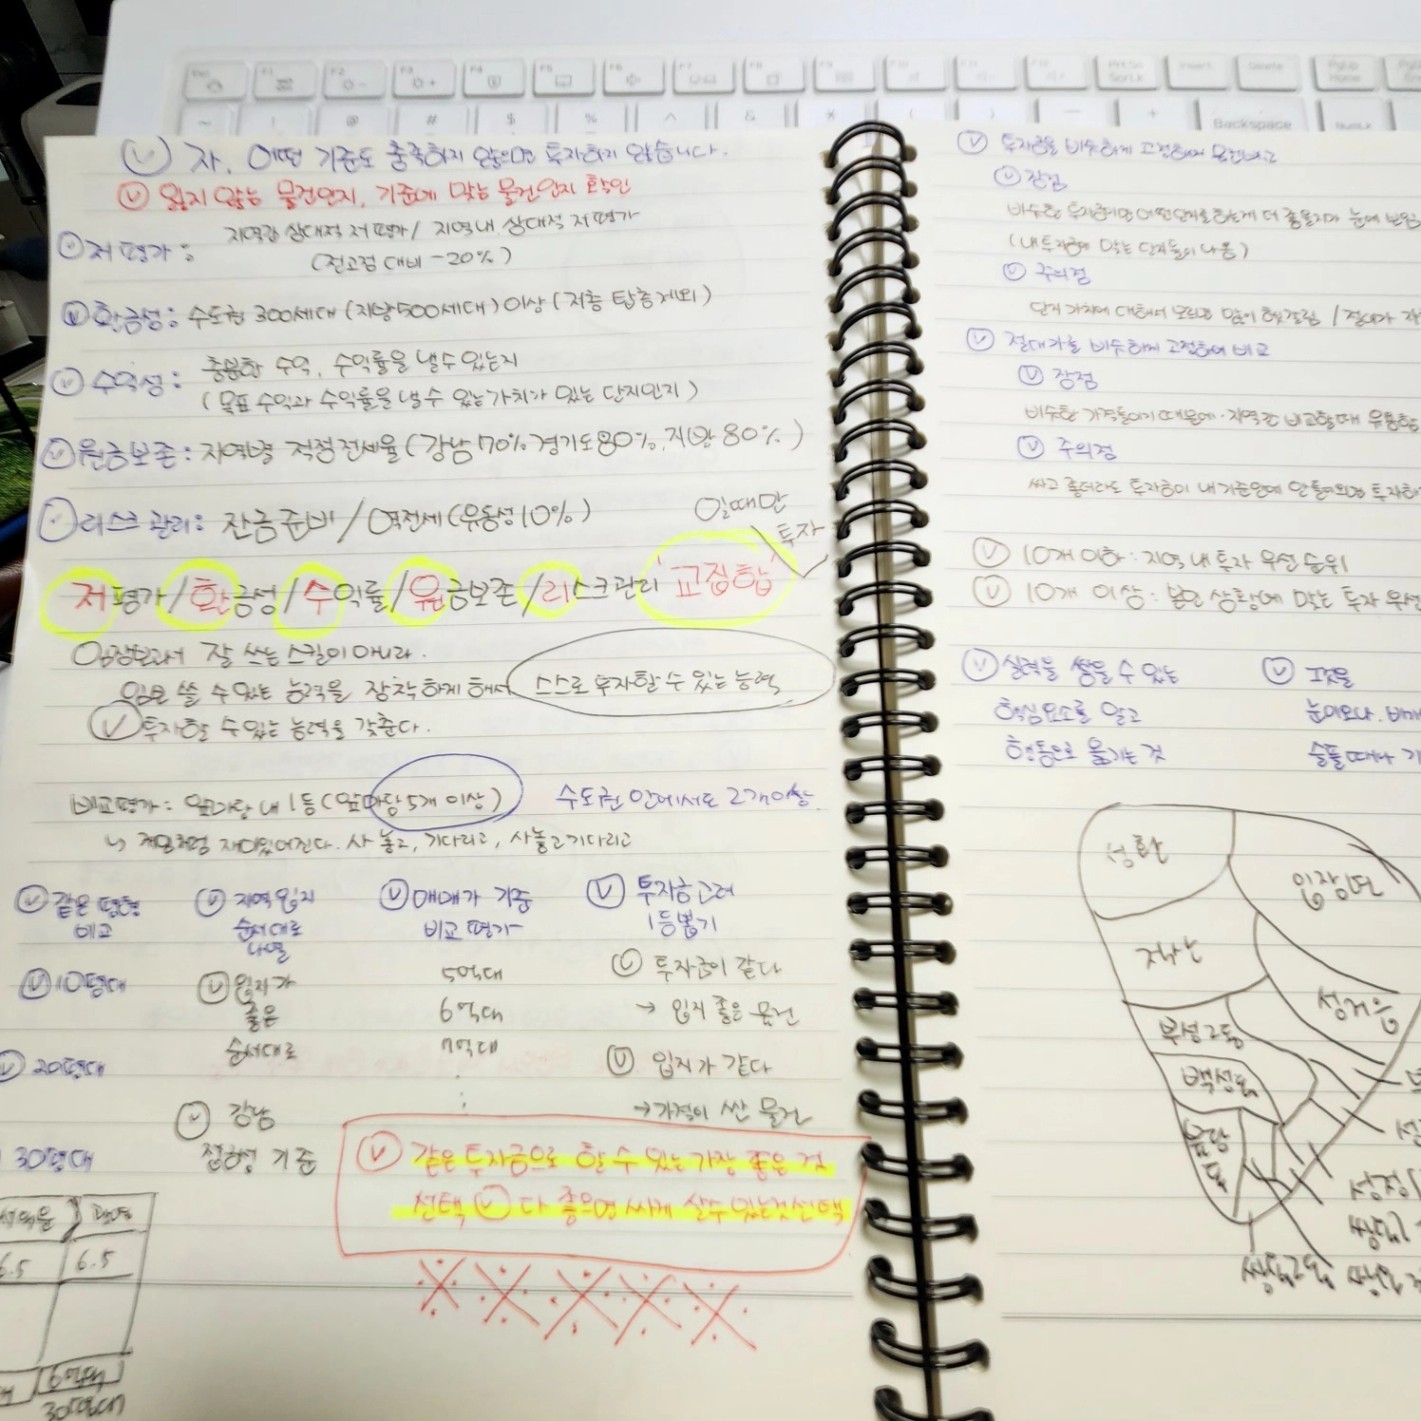 자. 어떤 기준도 충족하지 않으면 투자하지 않습니다.
잃지 않는 물건인지, 기준에 맞는 물건인지 확인
저평가: 지역간 상대적 저평가 / 지역내 상대적 저평가
(전고점 대비 -20%)
환금성: 수도권 300세대 (지방 500세대) 이상 (저층 탑층 제외)
수익성: 충분한 수익, 수익률을 낼 수 있는지
(목표 수익과 수익률을 낼 수 있는 가치가 있는 단지인지)
원금보존: 지역별 적정 전세율 (강남 70% 경기도 80%, 지방 80%)
리스크 관리: 잔금준비 / 역전세 (유동성 10%)
일때만
투자
저평가/환금성/수익률/원금보존/리스크관리 '교집합'
임장보고서 잘 쓰는 스킬이 아니라.
쓸 수 있는 능력을 장착하게 해서 스스로 투자할 수 있는 능력
투자할 수 있는 능력을 갖춘다.
비교평가: 앞마당 내 1등 (앞마당 5개 이상) 수도권 안에서도 2개이상.
↳ 게임처럼 재미있어진다. 사 놓고, 기다리고, 사놓고 기다리고
같은 평형
비교
지역 입지
순서대로
나열
매매가 기준
비교 평가
투자금 고려
1등뽑기
10평대
입지가
좋은
순서대로
5억대
6억대
7억대
투자금이 같다
→ 입지 좋은 물건
20평대
입지가 같다
→ 가격이 싼 물건
강남
접근성 기준
30평대
같은 투자금으로 할 수 있는 가장 좋은 것
선택 다 좋으면 싸게 살수있는것 선택
6.5
6.5
6억대
30평대
투자금을 비슷하게 고정하여 물건비교
장점
비슷한 투자금이면 어떤단지를 하는게 더 좋을지가 눈에 보임
(내 투자금에 맞는 단지들이 나옴)
주의점
단지 가치에 대해서 모르면 많이 헷갈림 / 절대가
절대가를 비슷하게 고정하여 비교
장점
비슷한 가격들이기 때문에 지역간 비교할때 유용함
주의점
싸고 좋더라도 투자금이 내 기준안에 안들어오면 투자하
10개 이하: 지역 내 투자 우선 순위
10개 이상: 본인 상황에 맞는 투자 우선
실력을 쌓을 수 있는
핵심요소를 알고
행동으로 옮기는 것
그것을
눈이오나, 비
슬플때나 기
성환
입장면
직산
성거읍
부성2동
백석동
불당동
쌍용2동